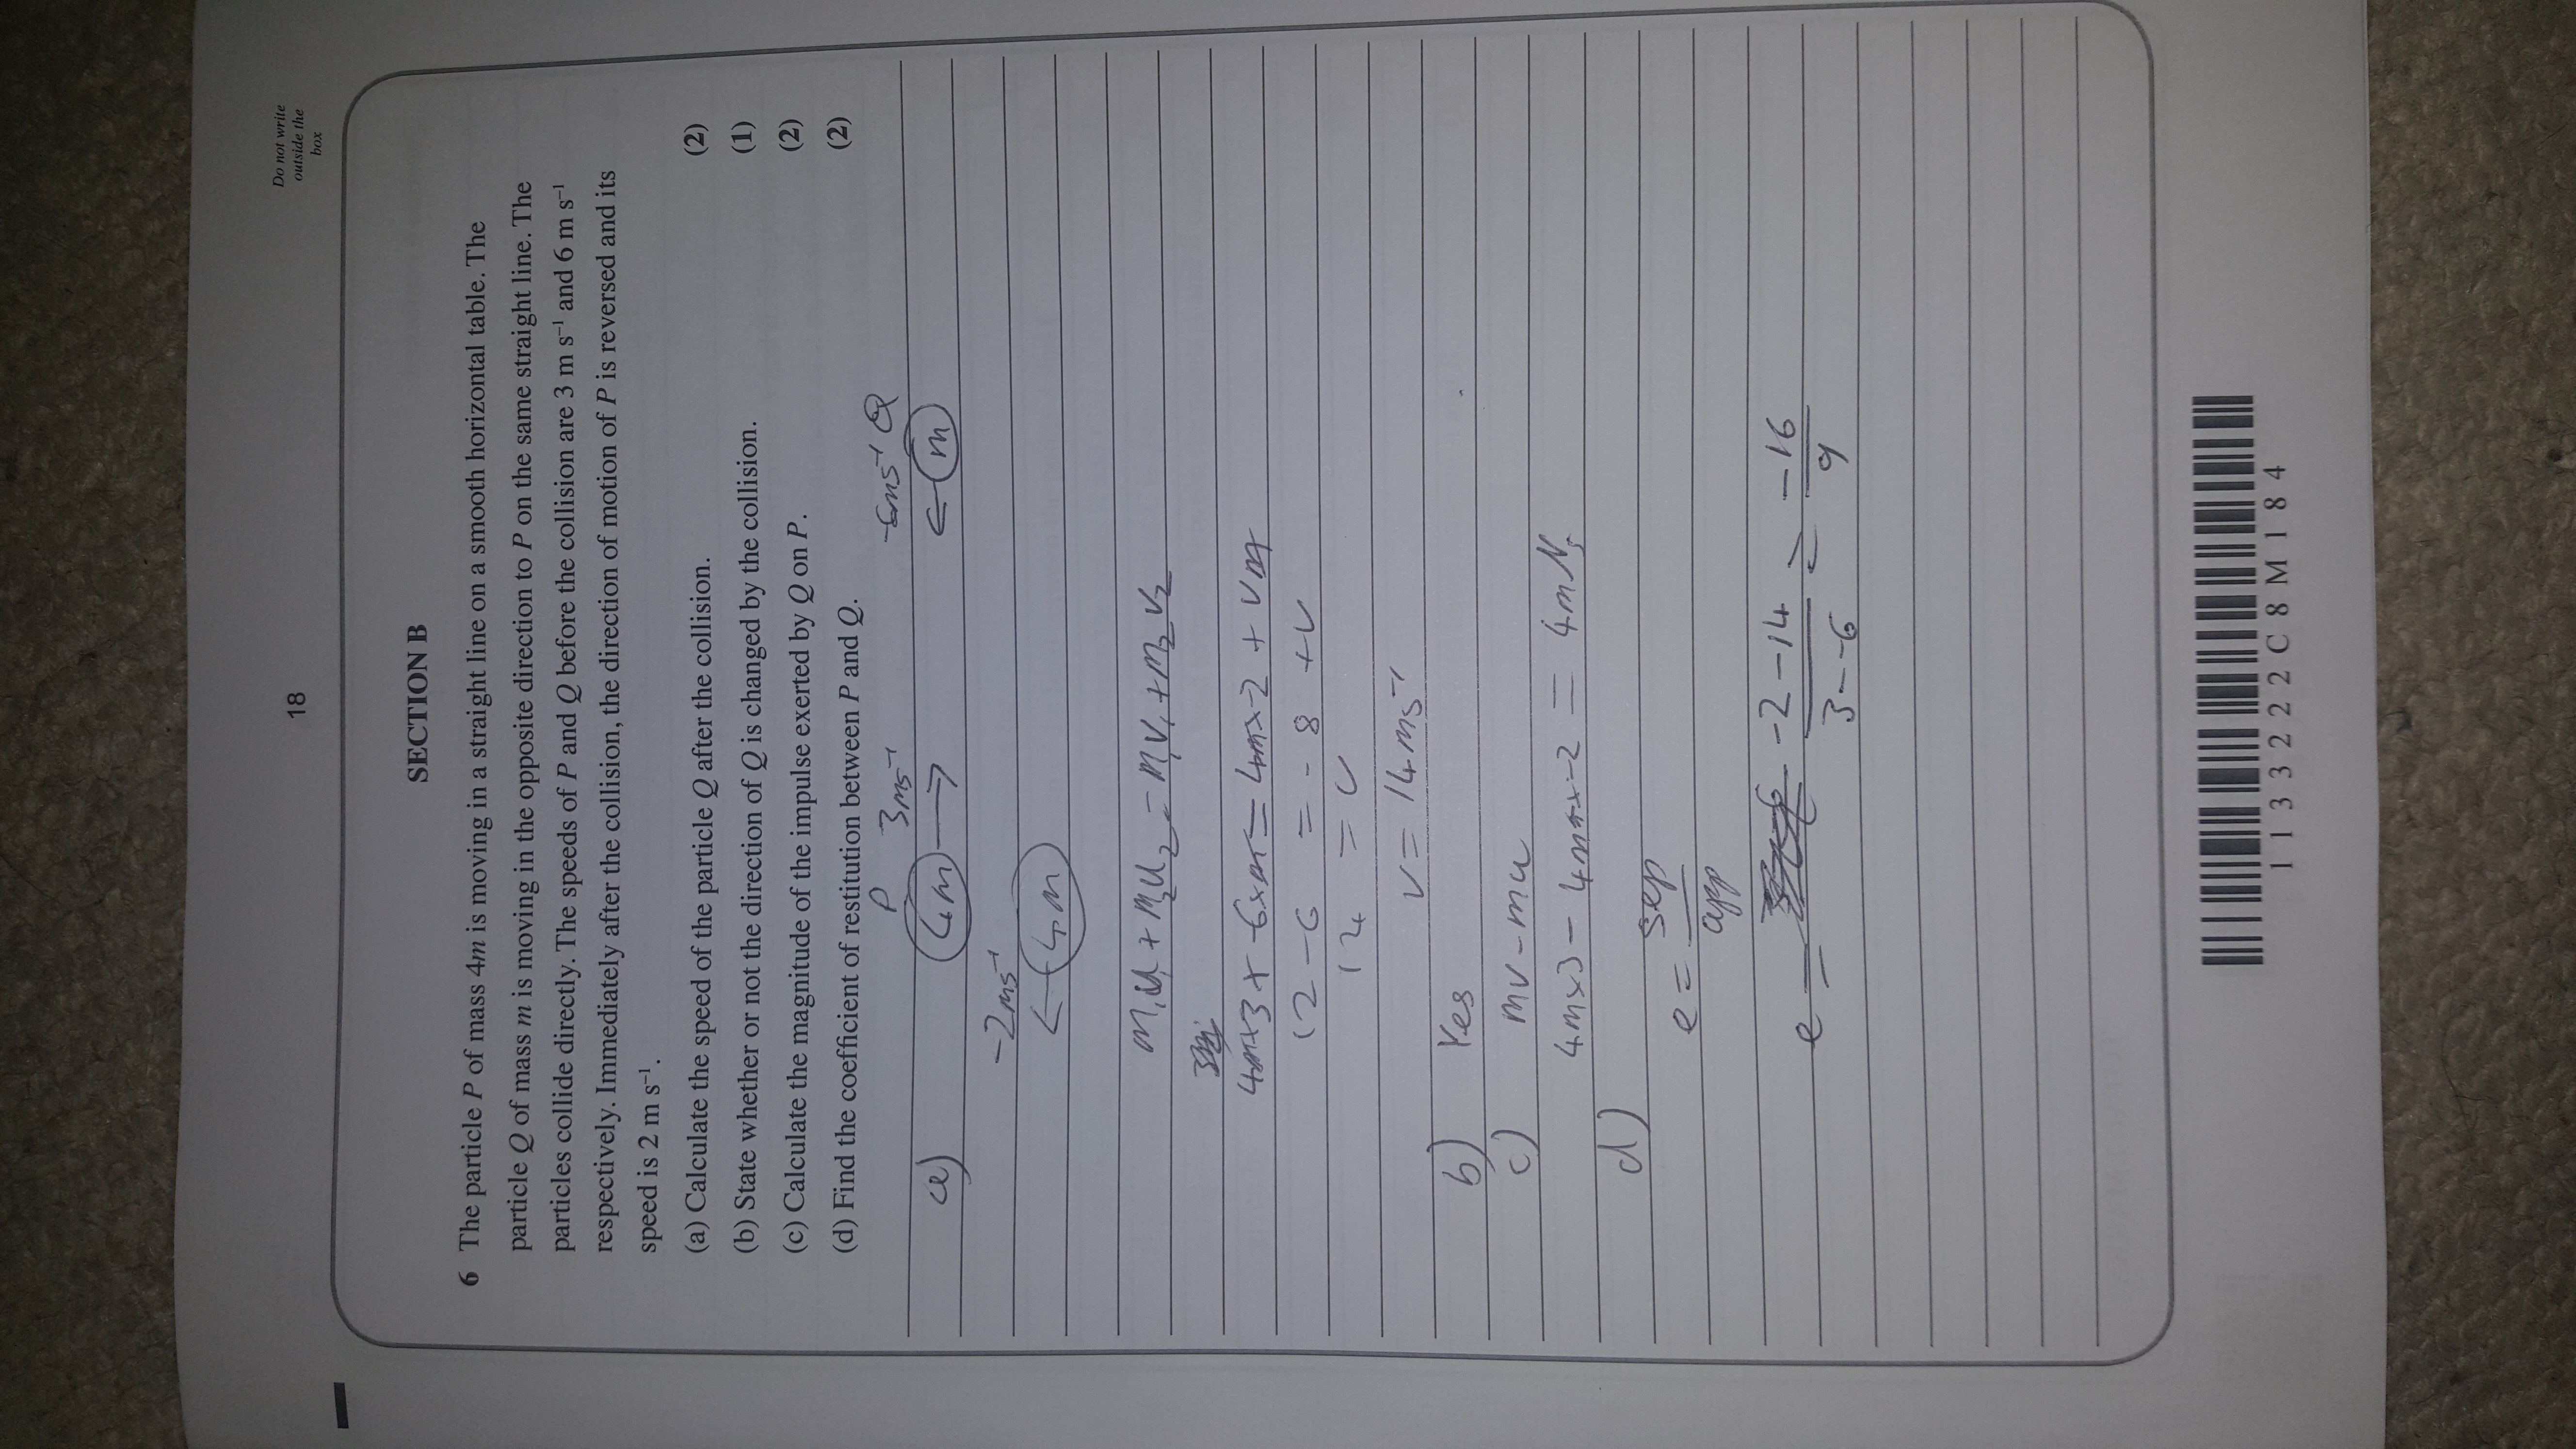 18
Do not write
outside the
box
SECTION B
6 The particle P of mass 4m is moving in a straight line on a smooth horizontal table. The
particle Q of mass m is moving in the opposite direction to P on the same straight line. The
particles collide directly. The speeds of P and Q before the collision are 3 m s⁻¹ and 6 m s⁻¹
respectively. Immediately after the collision, the direction of motion of P is reversed and its
speed is 2 m s⁻¹.
(a) Calculate the speed of the particle Q after the collision. (2)
(b) State whether or not the direction of Q is changed by the collision. (1)
(c) Calculate the magnitude of the impulse exerted by Q on P. (2)
(d) Find the coefficient of restitution between P and Q. (2)
P 3ms⁻¹ -6ms⁻¹ Q
a) 4m → ← m
-2ms⁻¹
← 4m
m₁u₁ + m₂u₂ = m₁v₁ + m₂v₂
4m×3 + -6×m = 4m×-2 + vm
12 - 6 = - 8 + v
14 = v
v = 14ms⁻¹
b) Yes
c) mv - mu
4m×3 - 4m××-2 = 4m Ns
d)
e = sep
app
e = -2 -14 = -16
3--6 9
1133222C8M184